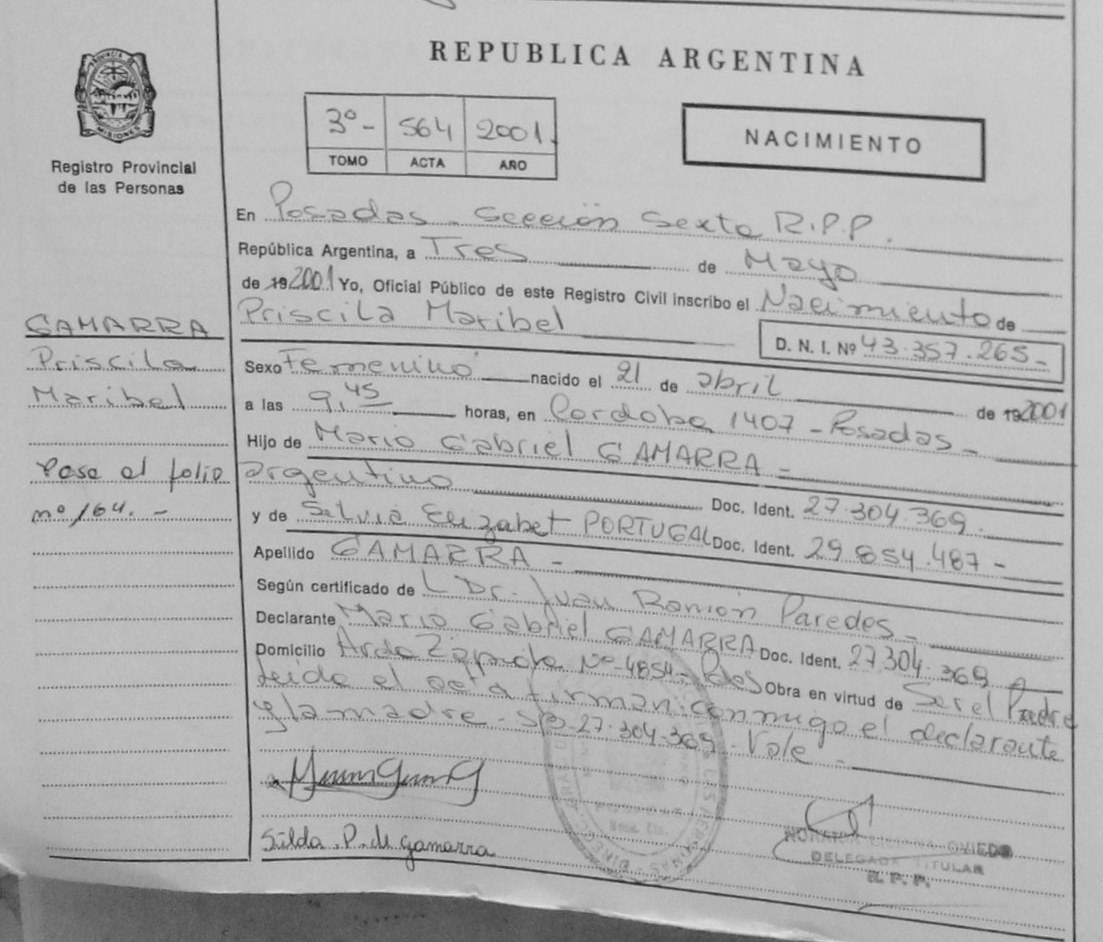 REPUBLICA ARGENTINA
PROVINCIA DE
MISIONES
Registro Provincial
de las Personas
3º- 564 2001.
TOMO ACTA AÑO
NACIMIENTO
En Posadas - Sección Sexta R.P.P.
República Argentina, a Tres de Mayo
de 192001 Yo, Oficial Público de este Registro Civil inscribo el Nacimiento de
Priscila Maribel
D. N. I. Nº 43.357.265-
GAMARRA
Priscila
Maribel
Pase al folio
nº 164. -
Sexo Femenino nacido el 21 de abril de 192001
a las 9,45 horas, en Cordoba 1407 - Posadas -
Hijo de Mario Gabriel GAMARRA -
argentino Doc. Ident. 27.304.369.
y de Silvia Elizabet PORTUGAL Doc. Ident. 29.854.487 -
Apellido GAMARRA -
Según certificado de L Dr. Juan Ramón Paredes -
Declarante Mario Gabriel GAMARRA Doc. Ident. 27.304.369
Domicilio Zapiola Nº 4854 - Pdas Obra en virtud de Ser el Padre
leida el acta firman conmigo el declarante
y la madre - S/B 27-304-369 - Vale -
P. de Gamarra
OVIEDO
DELEGADA TITULAR
R. P. P.